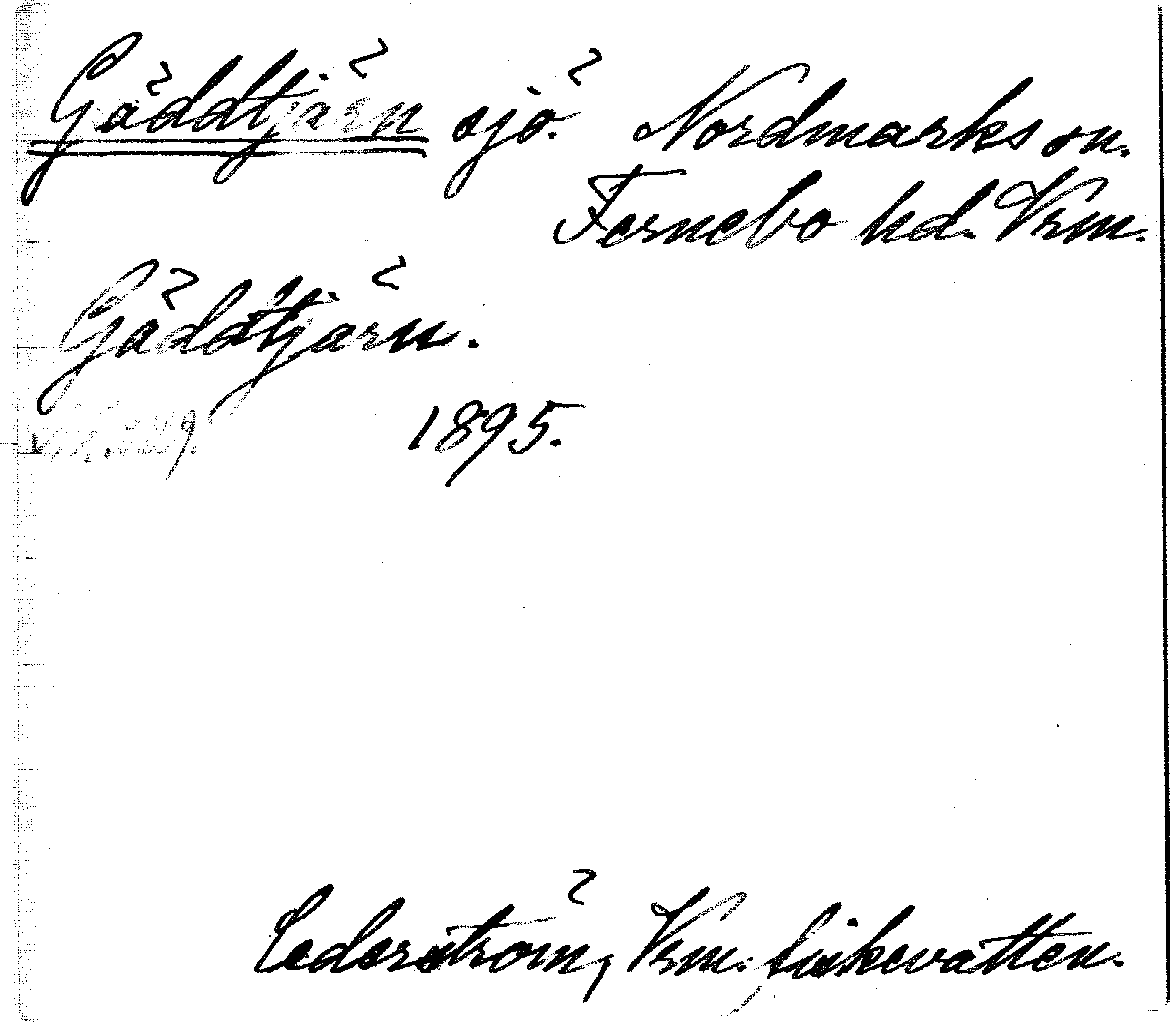 Gäddtjärn sjö. Nordmarks sn.
Fernebo hd. Vrm.
Gäddtjärn.
1895.
Cederström, Vrm. fiskevatten.